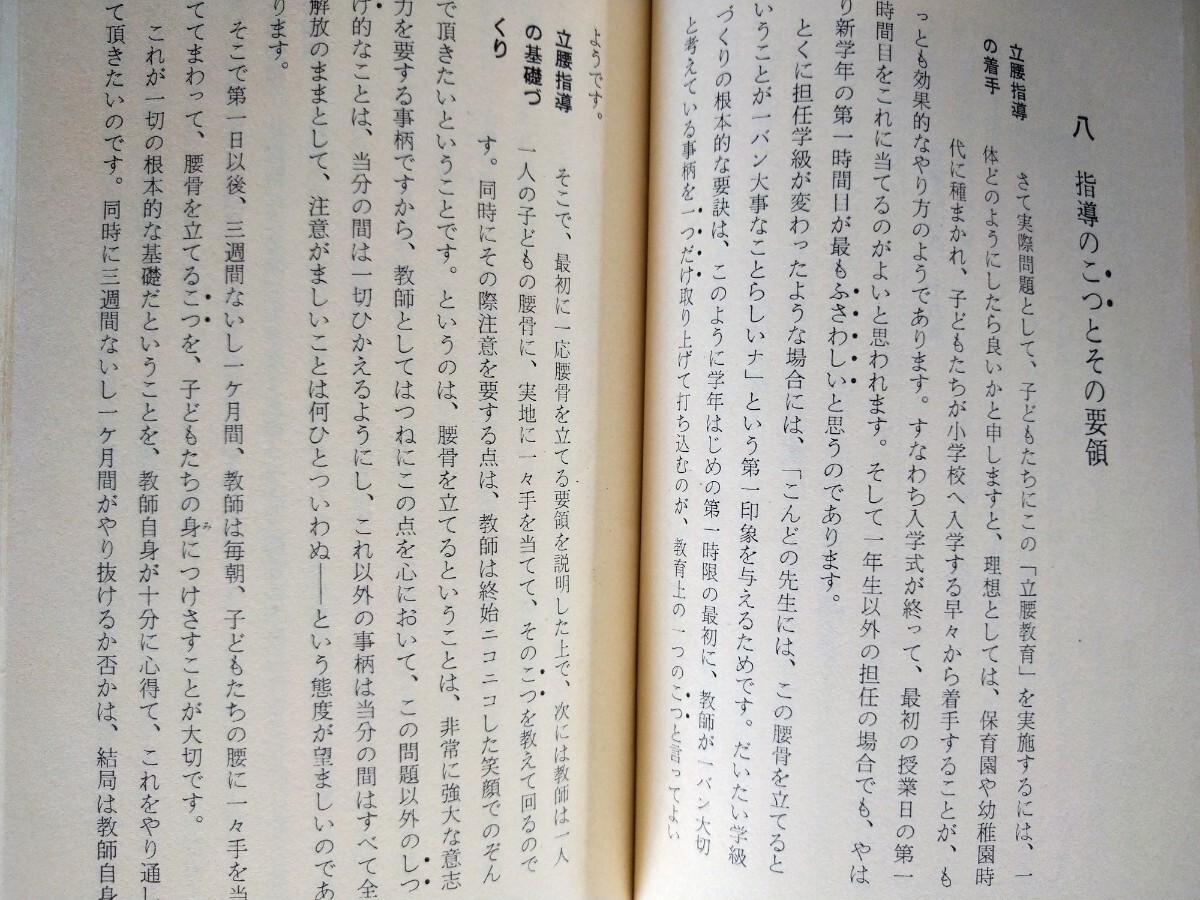 八　指導のこつとその要領
立腰指導
の着手
さて実際問題として、子どもたちにこの「立腰教育」を実施するには、一
体どのようにしたら良いかと申しますと、理想としては、保育園や幼稚園時
代に種まかれ、子どもたちが小学校へ入学する早々から着手することが、も
っとも効果的なやり方のようであります。すなわち入学式が終って、最初の授業日の第一
時間目をこれに当てるのがよいと思われます。そして一年生以外の担任の場合でも、やは
り新学年の第一時間目が最もふさわしいと思うのであります。
とくに担任学級が変わったような場合には、「こんどの先生には、この腰骨を立てると
いうことが一バン大事なことらしいナ」という第一印象を与えるためです。だいたい学級
づくりの根本的な要訣は、このように学年はじめの第一時限の最初に、教師が一バン大切
と考えている事柄を一つだけ取り上げて打ち込むのが、教育上の一つのこつと言ってよい
ようです。
立腰指導
の基礎づ
くり
そこで、最初に一応腰骨を立てる要領を説明した上で、次には教師は一人
一人の子どもの腰骨に、実地に一々手を当てて、そのこつを教えて回るので
す。同時にその際注意を要する点は、教師は終始ニコニコした笑顔でのぞん
で頂きたいということです。というのは、腰骨を立てるということは、非常に強大な意志
力を要する事柄ですから、教師としてはつねにこの点を心において、この問題以外のしつ
け的なことは、当分の間は一切ひかえるようにし、これ以外の事柄は当分の間はすべて全
解放のままとして、注意がましいことは何ひとついわぬ――という態度が望ましいのであ
ります。
そこで第一日以後、三週間ないし一ケ月間、教師は毎朝、子どもたちの腰に一々手を当
ててまわって、腰骨を立てるこつを、子どもたちの身につけさすことが大切です。
これが一切の根本的な基礎だということを、教師自身が十分に心得て、これをやり通し
て頂きたいのです。同時に三週間ないし一ケ月間がやり抜けるか否かは、結局は教師自身